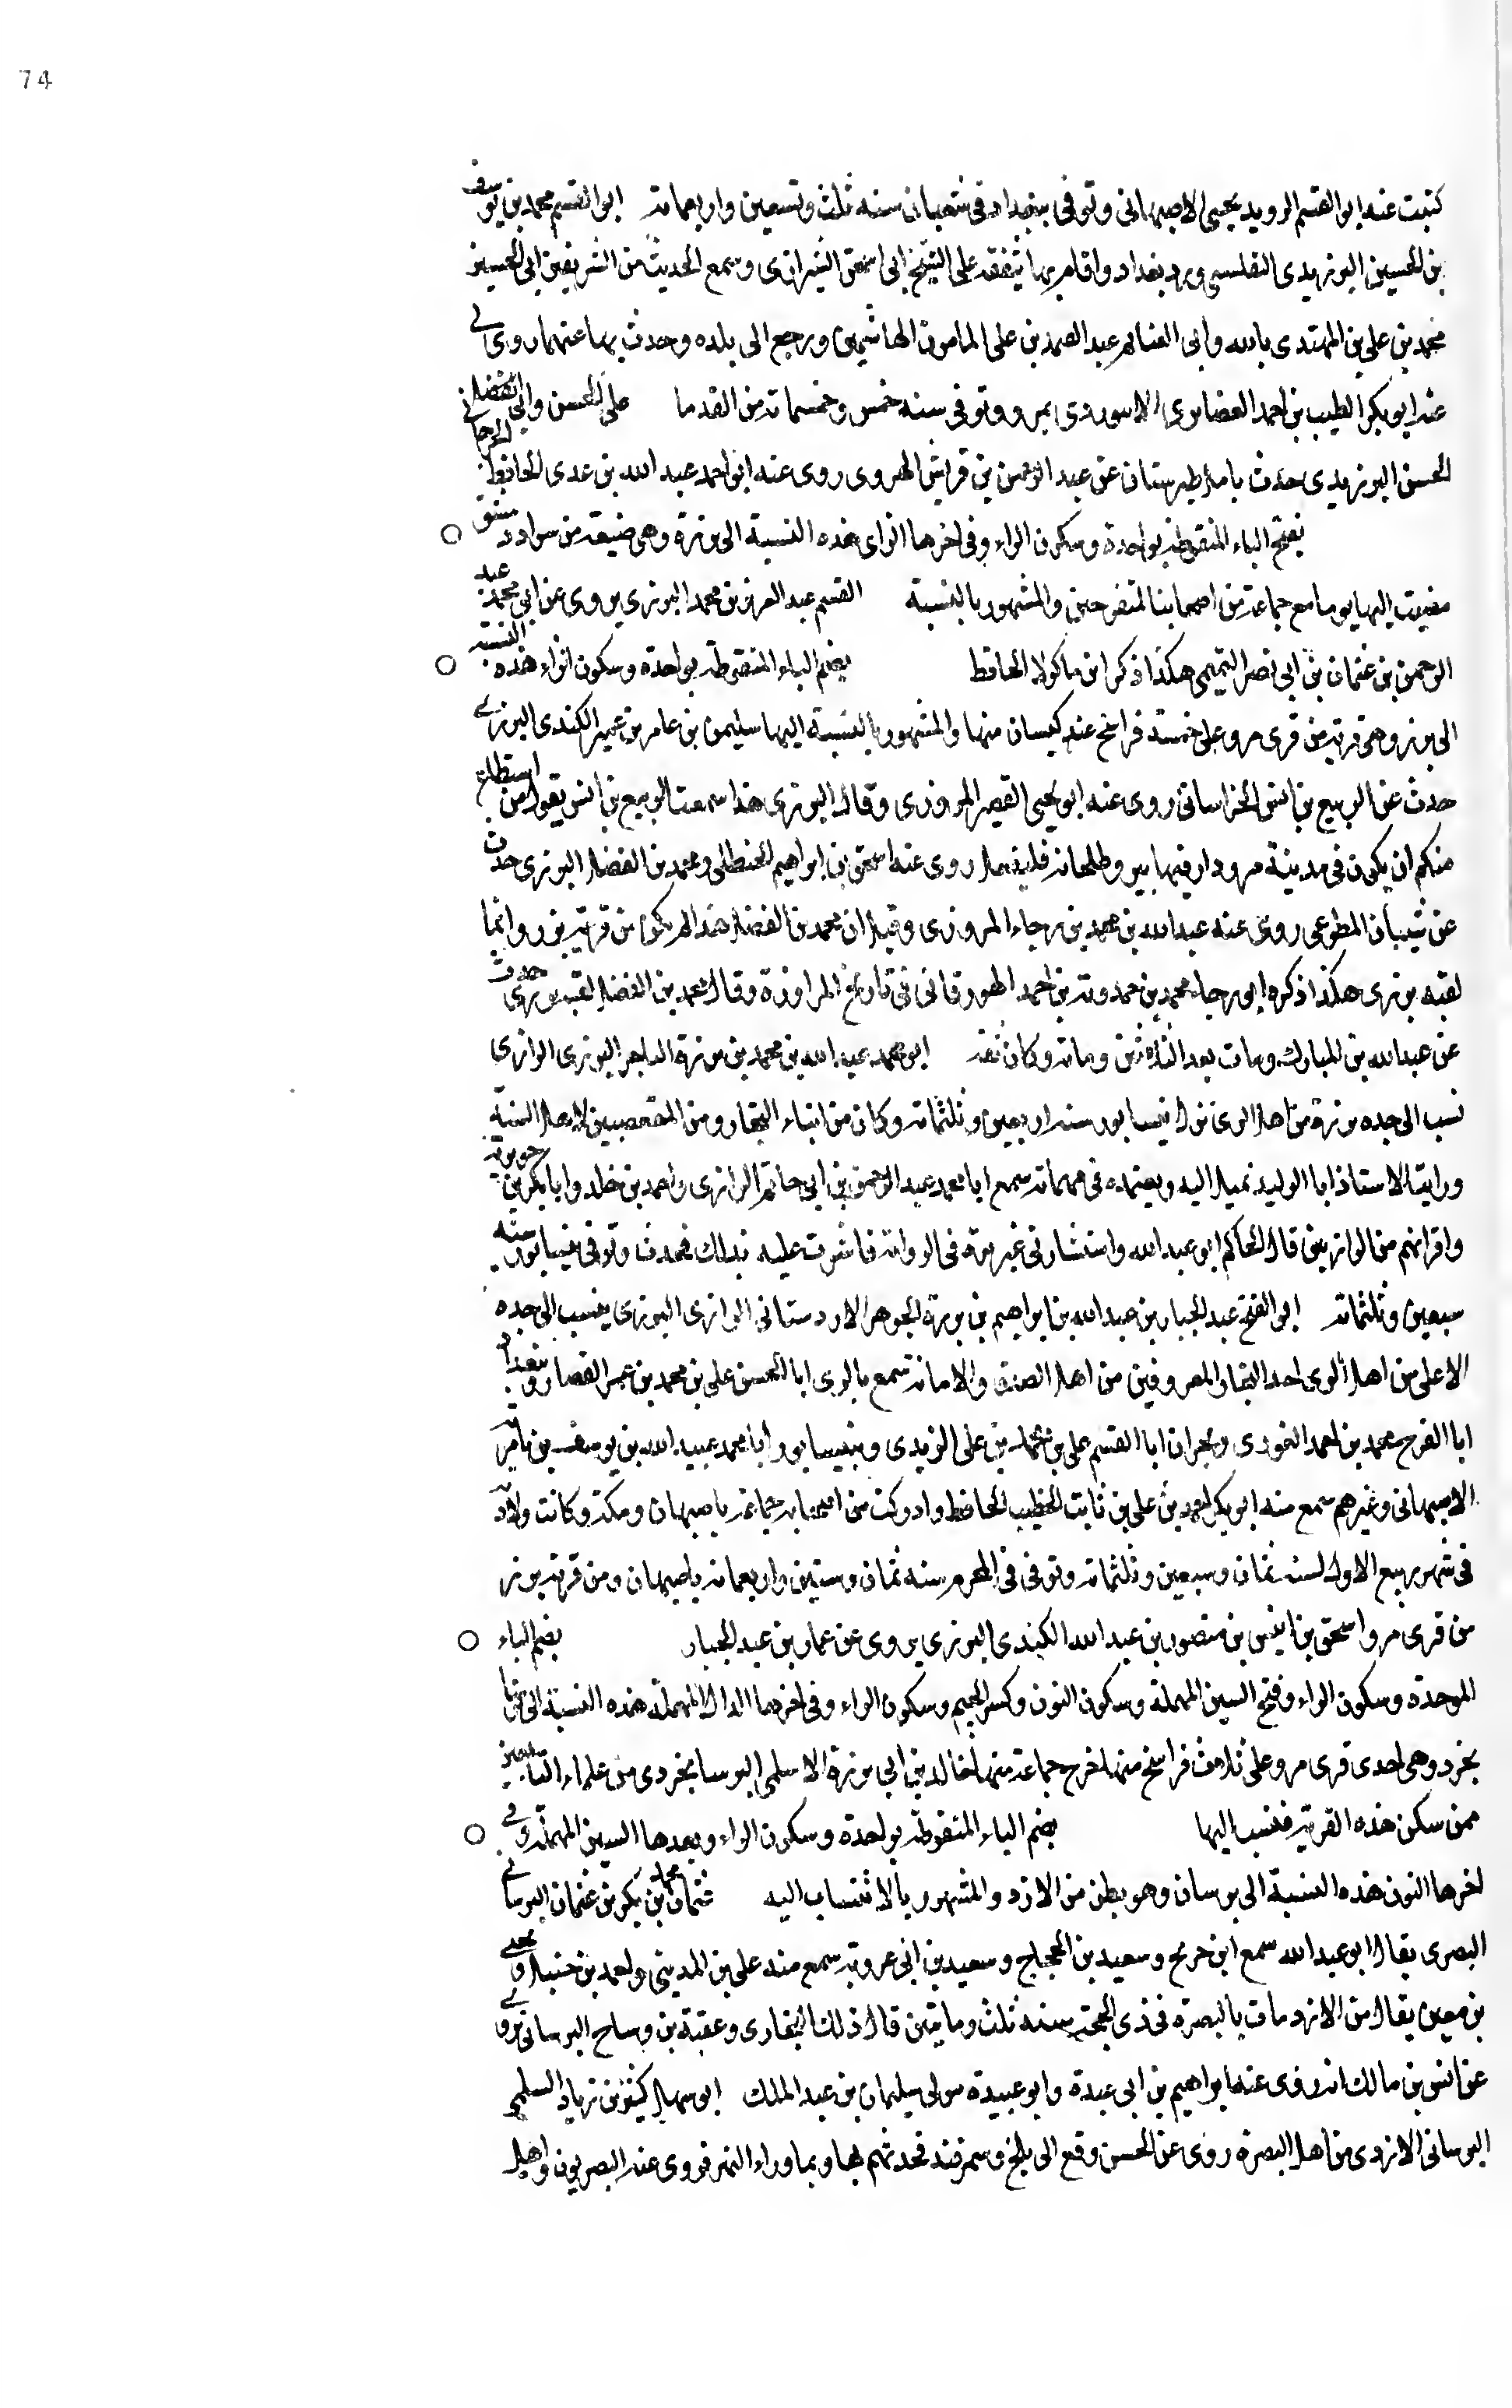 74
كتبت عنه ابو القسم الرويد يحيى الاصبهانى وتوفى ببغداد فى شعبان سنه ثلث وتسعين واربعمائه ابو القسم محمد بن يوسف
بن الحسين البرزيدى التفلسى ورد بغداد واقام بها يتفقه على الشيخ ابى اسحق الشيرازى وسمع الحديث من الشريفين ابى الحسين
محمد بن على بن المهتدى بالله وابى الغنائم عبد الصمد بن على المامون الهاشمين ورجع الى بلده وحدث بها عنهما روى لى
عنه ابو بكر الطيب بن احمد الغضايرى الابيوردى بمرو وتوفى سنه خمس وخمسمائه من القدما على الحسن وابى الفضل
الحسن البرزيدى حدث بامل طبرستان عن عبد الرحمن بن قراش الهروى روى عنه ابو احمد عبد الله بن عدى الحافظ الجرجانى
بفتح الباء المنقوطه بواحدة وسكون الراء وفى اخرها الزاى هذه النسبة الى برزة وهى ضيعة من سواد دمشق
مضيت اليها يوما مع جماعة من اصحابنا المتفرجين والمشهور بالنسبة القسم عبد العزيز بن محمد البرزى يروى عن ابى محمد عبد
الرحمن بن عثمان بن ابى نصر التميمى هكذا ذكر ابن ماكولا الحافظ بضم الباء المنقوطة بواحدة وسكون الراء هذه النسبة
الى برز وهى قرية من قرى مرو على خمسة فراسخ عند كيسان منها والمشهور بالنسبة اليها سليمن بن عامر بن عمير الكندى البرزى
حدث عن الربيع بن انس الخراسانى روى عنه ابو يحيى القصير المروزى وقال البرزى هذا سمعت الربيع بن انس يقول من استطاع
منكم ان يكون فى مدينة مرو دار فيها بير وطلحانه فليفعل روى عنه اسحق بن ابراهيم الحنظلى ومحمد بن الفضل البرزى حدث
عن شيبان المطوعى روى عنه عبد الله بن محمد بن رجاء المروزى وقيل ان محمد بن الفضل هذا لم يكن من قرية برز وانما
لقبه برزى هكذا ذكره ابو رجاء محمد بن حمدويه بن احمد الهورقانى فى تاريخ المراوزة وقال محمد بن الفضل لقبه برزى حدث
عن عبد الله بن المبارك ومات بعد الثلاثين ومائه وكان ثقه ابو محمد عبد الله بن محمد بن برزة التاجر البرزى الرازى
نسب الى جده برزة من اهل الرى نزل نيسابور سنه اربعين وثلثمائه وكان من ابناء التجار ومن المتعصبين لاهل السنة
ورايت الاستاذ ابا الوليد يميل اليه ويعتمده فى مهماته سمع ابا محمد عبد الرحمن بن ابى حاتم الرازى واحمد بن خلد وابا بكر بن جويريه
واقرانهم من الرازيين قال الحاكم ابو عبد الله واستشارنى غير مرة فى الرواية فاشرت عليه بذلك فحدث وتوفى بنيسابور سنه
سبعين وثلثمائه ابو الفتح عبد الجبار بن عبد الله بن ابراهيم بن برزة الجوهر الاردستانى الرازى البرزى ينسب الى جده
الاعلى من اهل الرى احد التجار المعروفين من اهل الصدق والامانه سمع بالرى ابا الحسن على بن محمد بن عمر القصار وببغداد
ابا الفرج محمد بن احمد الغورى وبحران ابا القسم على بن محمد بن على الزيدى وبنيسابور ابا محمد عبيد الله بن يوسف بن بامويه
الاصبهانى وغيرهم سمع منه ابو بكر احمد بن على بن ثابت الخطيب الحافظ وادركت من اصحابه جماعة باصبهان ومكة وكانت ولادته
فى شهر ربيع الاول لسنه ثمان وسبعين وثلثمائه وتوفى فى المحرم سنه ثمان وستين واربعمائه باصبهان ومن قرية برز
من قرى مرو اسحق بن انيس بن منصور بن عبد الله الكندى البرزى يروى عن عمار بن عبد الجبار بضم الباء
الموحدة وسكون الراء وفتح السين المهملة وسكون النون وكسر الجيم وسكون الراء وفى اخرها الدال المهملة هذه النسبة الى
بخرد وهى احدى قرى مرو على ثلاث فراسخ منها خرج جماعة منها خالد بن ابى برزة الاسلمى البرسانجردى من علماء التابعين
ممن سكن هذه القرية فنسب اليها بضم الباء المنقوطة بواحدة وسكون الراء وبعدها السين المهملة وفى
اخرها النون هذه النسبة الى برسان وهو بطن من الازد والمشهور بالانتساب اليه عثمان محمد بن بكر بن عثمان البرسانى
البصرى يقال ابو عبد الله سمع ابن جريج وسعيد بن الحجاج وسعيد بن ابى عروبة سمع منه على بن المدينى واحمد بن حنبل ويحيى
بن معين يقال من الازد مات بالبصرة فى ذى الحجة سنه ثلث ومائتين قال ذلك البخارى وعقبة بن وساح البرسانى يروى
عن انس بن مالك انه روى عنه ابراهيم بن ابى عبدة وابو عبيدة مولى سليمان بن عبد الملك ابو سهل كثير بن زياد السلمى
البرسانى الازدى من اهل البصرة روى عن الحسن وقع الى بلخ وسمرقند فحدثهم بها وبما وراء النهر فروى عنه البصريون واهل